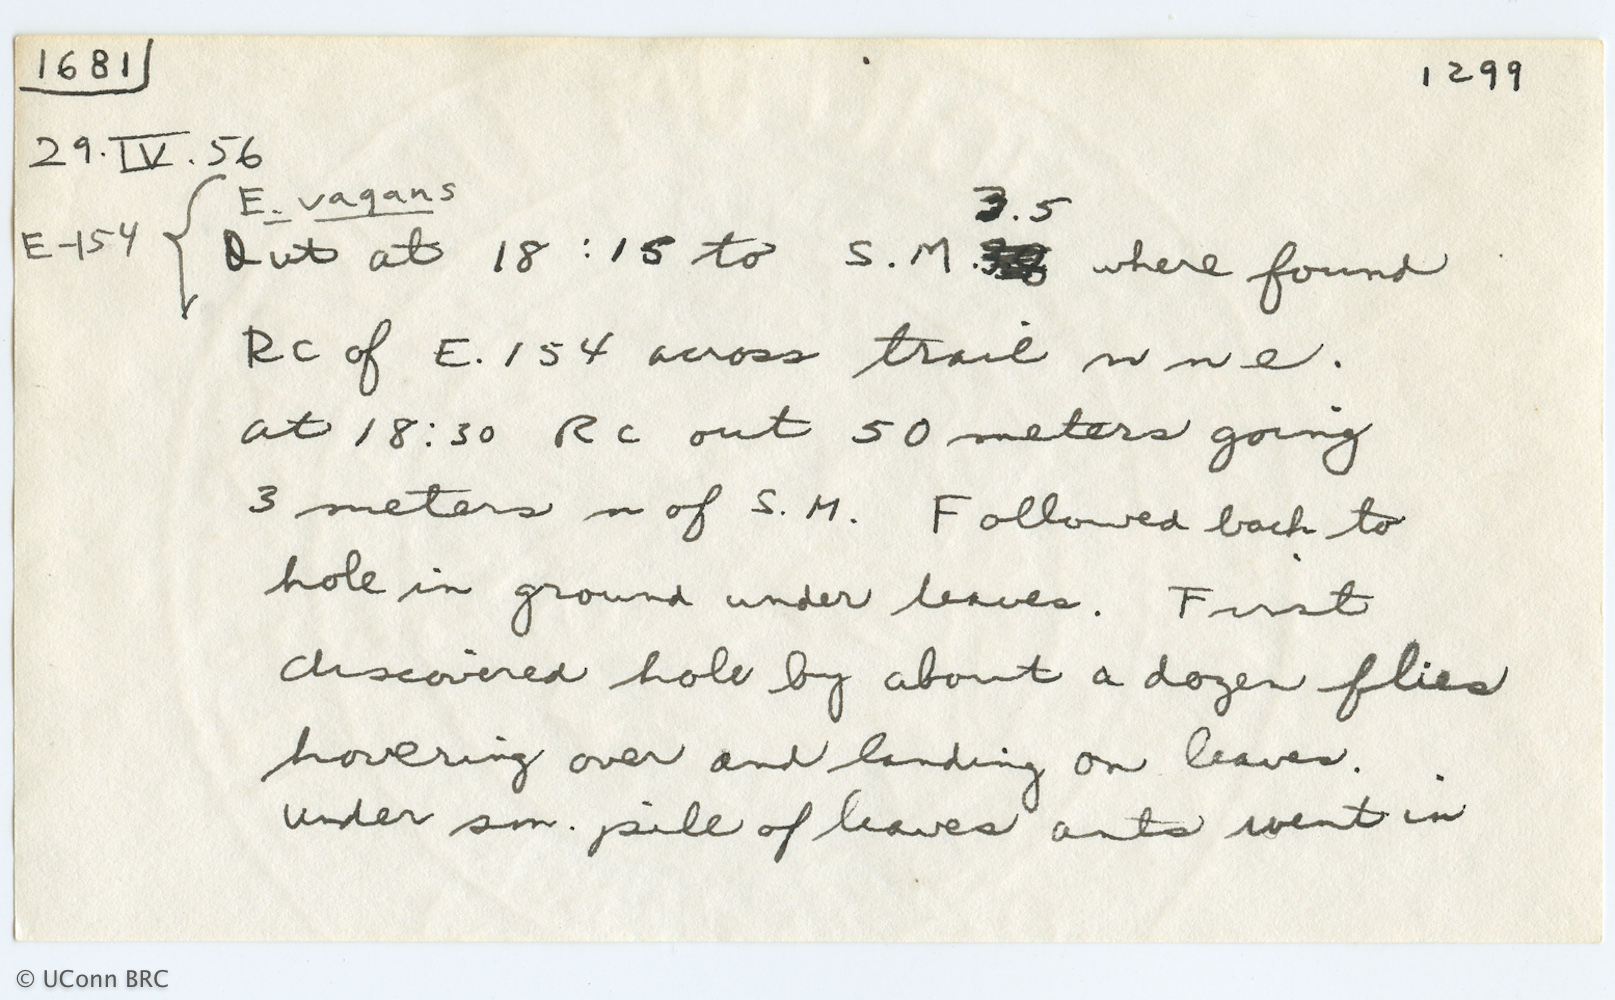 1681 1299
29.IV.56
E. vagans
3.5
E-154 Out at 18:15 to S.M. where found
RC of E.154 across trail n n e.
at 18:30 RC out 50 meters going
3 meters n of S.M. Followed back to
hole in ground under leaves. First
discovered hole by about a dozen flies
hovering over and landing on leaves.
under sm. pile of leaves ants went in
© UConn BRC